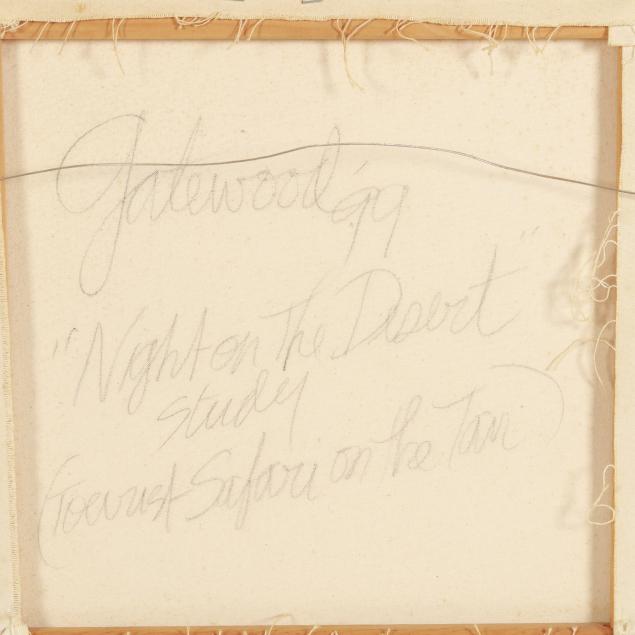 Gatewood '99
"Night on The Desert"
study
(Tourist Safari on The Tour)